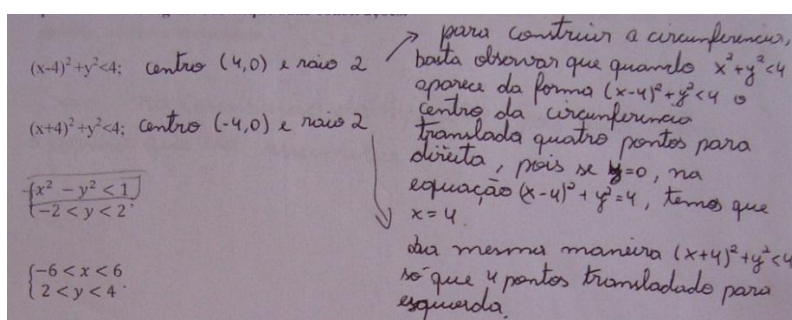 (x-4)²+y²<4; centro (4,0) e raio 2
(x+4)²+y²<4; centro (-4,0) e raio 2
{x² − y² < 1
−2 < y < 2;
{−6 < x < 6
2 < y < 4.
para construir a circunferencia,
basta observar que quando x²+y²<4
aparece da forma (x-4)²+y²<4 o
centro da circunferencia
translada quatro pontos para
direita, pois se y=0, na
equação (x-4)²+y²=4, temos que
x=4.
Da mesma maneira (x+4)²+y²<4
só que 4 pontos transladado para
esquerda.